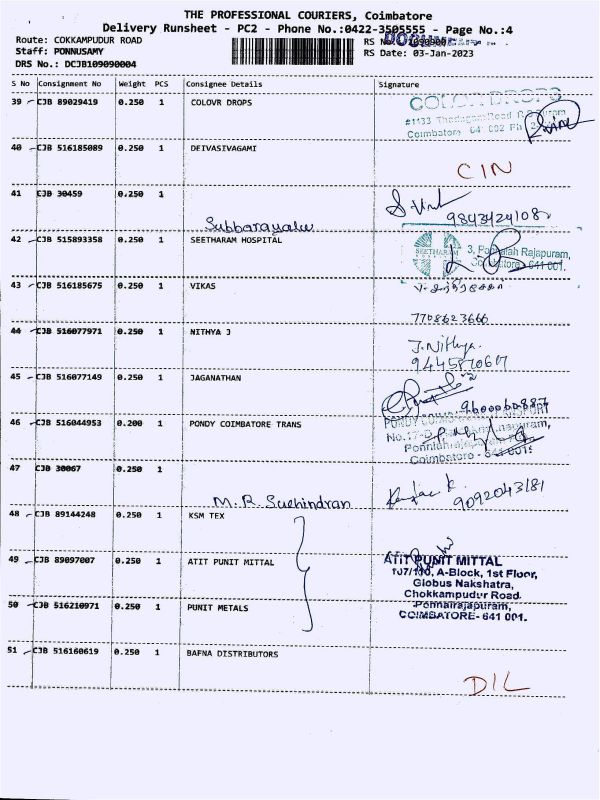 THE PROFESSIONAL COURIERS, Coimbatore
Delivery Runsheet - PC2 - Phone No.:0422-3505555 - Page No.:4
Route: COKKAMPUDUR ROAD
Staff: PONNUSAMY
RS Date: 03-Jan-2023
DRS No.: DCJB109090004
S No Consignment No Weight PCS Consignee Details Signature
39 CJB 89029419 0.250 1 COLOVR DROPS
COLOVR DROPS
#1133 Thadagam Road
Coimbatore 641 002
40 CJB 516185089 0.250 1 DEIVASIVAGAMI
CIN
41 CJB 30459 0.250 1
Subbarayalu
42 CJB 515893358 0.250 1 SEETHARAM HOSPITAL
SEETHARAM
3, Ponnaiah Rajapuram,
Coimbatore - 641 001.
43 CJB 516185675 0.250 1 VIKAS
7708623666
44 CJB 516077971 0.250 1 NITHYA J
J.Nithya.
9445870607
45 CJB 516077149 0.250 1 JAGANATHAN
9600060887
46 CJB 516044953 0.200 1 PONDY COIMBATORE TRANS
47 CJB 30067 0.250 1
M.R. Suchindran
9092043181
48 CJB 89144248 0.250 1 KSM TEX
49 CJB 89097007 0.250 1 ATIT PUNIT MITTAL
ATIT PUNIT MITTAL
A-Block, 1st Floor,
Globus Nakshatra,
Chokkampudur Road.
50 CJB 516210971 0.250 1 PUNIT METALS
Ponnairajapuram,
COIMBATORE- 641 001.
51 CJB 516160619 0.250 1 BAFNA DISTRIBUTORS
DIL